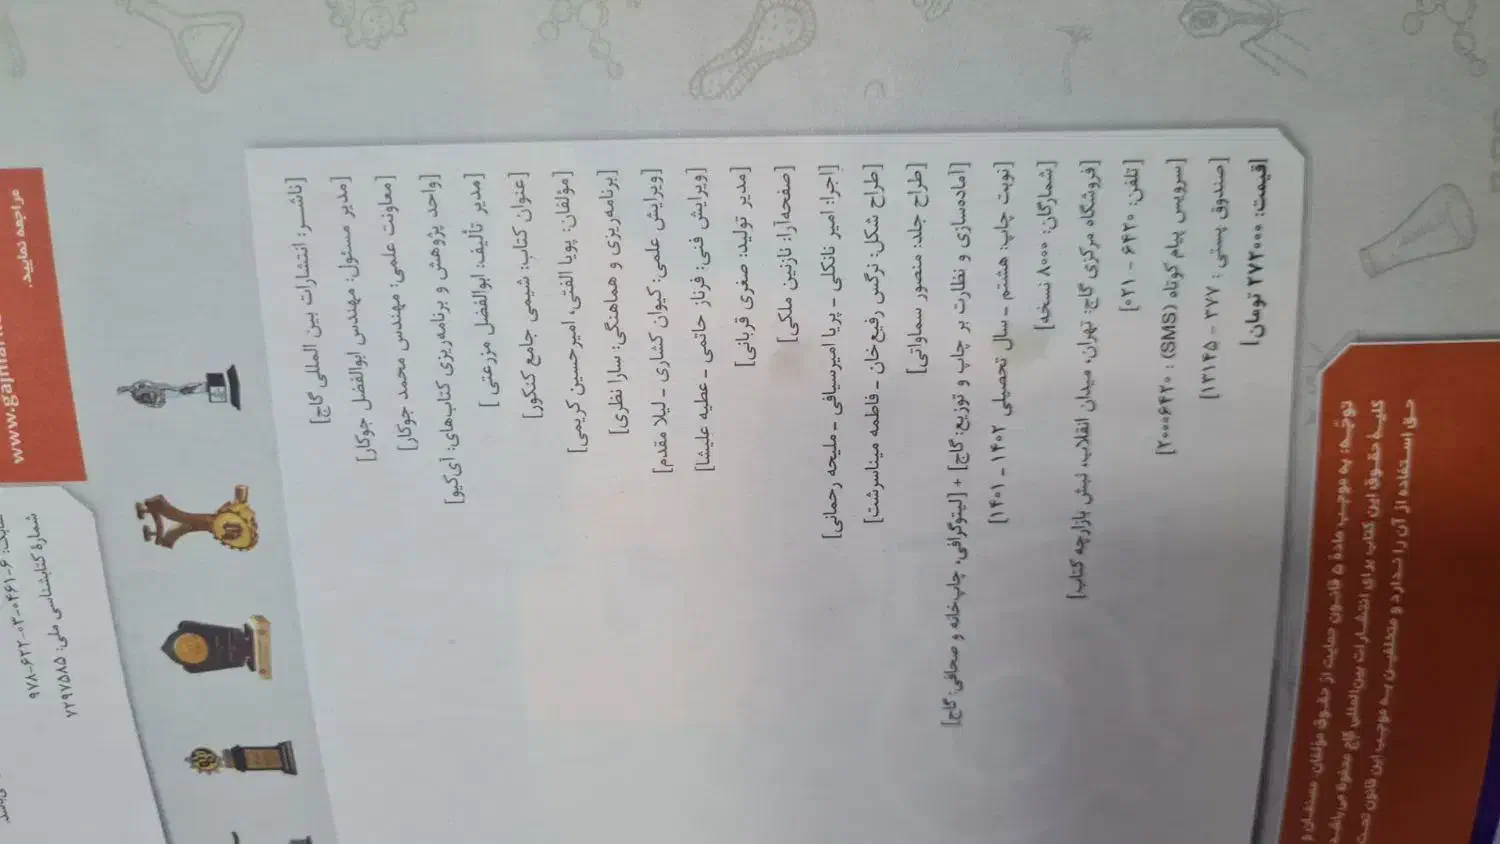 مراجعه نمایید.
www.gajmar
۹۷۸-۶۲۲-۰۳-۰۴۶۱-۶
شمارهٔ کتابشناسی ملی: ۷۲۹۷۵۸۵
[ناشــر: انتشارات بین المللی گاج]
[مدیر مسئول: مهندس ابوالفضل جوکار]
[معاونت علمی: مهندس محمد جوکار]
[واحد پژوهش و برنامه‌ریزی کتاب‌های: آی‌کیو]
[مدیر تألیف: ابوالفضل مزرعتی]
[عنوان کتاب: شیمی جامع کنکور]
[مؤلفان: پویا الفتی، امیرحسین کریمی]
[برنامه‌ریزی و هماهنگی: سارا نظری]
[ویرایش علمی: کیوان کساری - لیلا مقدم]
[ویرایش فنی: فرناز حاتمی - عطیه علیشا]
[مدیر تولید: صغری قربانی]
[صفحه‌آرا: نازنین ملکی]
[اجرا: امیر نانکلی - پریا امیرسیافی - ملیحه رحمانی]
[طراح شکل: نرگس رفیع‌خان - فاطمه میناسرشت]
[طراح جلد: منصور سماواتی]
[آماده‌سازی و نظارت بر چاپ و توزیع: گاج] + [لیتوگرافی، چاپ‌خانه و صحافی: گاج]
[نوبت چاپ: هشتم - سال تحصیلی ۱۴۰۲ - ۱۴۰۱]
[شمارگان: ۸۰۰۰ نسخه]
[فروشگاه مرکزی گاج: تهران، میدان انقلاب، نبش بازارچه کتاب]
[تلفن: ۶۴۲۰ - ۰۲۱]
[سرویس پیام کوتاه (SMS) : ۲۰۰۰۶۴۲۰]
[صندوق پستی : ۳۷۷ - ۱۳۱۴۵]
[قیمت: ۲۷۲۰۰۰ تومان]
توجّه: به موجب مادهٔ ۵ قانـون حمایت از حقـوق مؤلفان، مصنفـان و
کلیـهٔ حقـوق این کتاب برای انتشـارات بین‌المللی گاج محفوظ می‌باشـد
حـق اسـتفاده از آن را نـدارد و متخلفیـن بـه موجـب این قانون تحـت